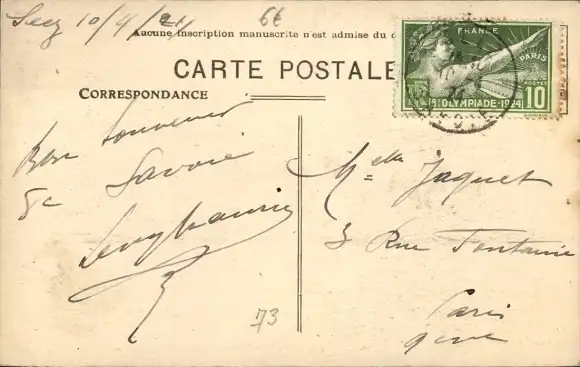 Seez 10/9/24
6t
Aucune inscription manuscrite n'est admise du c
CARTE POSTALE
CORRESPONDANCE
FRANCE
PARIS
POSTES
8E OLYMPIADE-1924
10
Bon souvenir
de Savoie
Melle Jaquet
3 Rue Fontaine
Paris
9eme
73